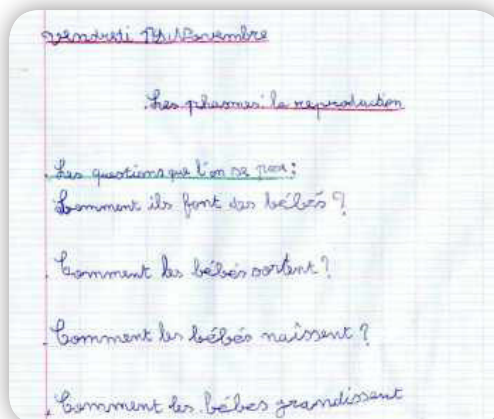 Vendredi 19 Novembre
Les phasmes: la reproduction
Les questions que l'on se pose:
Comment ils font des bébés?
Comment les bébés sortent?
Comment les bébés naissent?
Comment les bébés grandissent